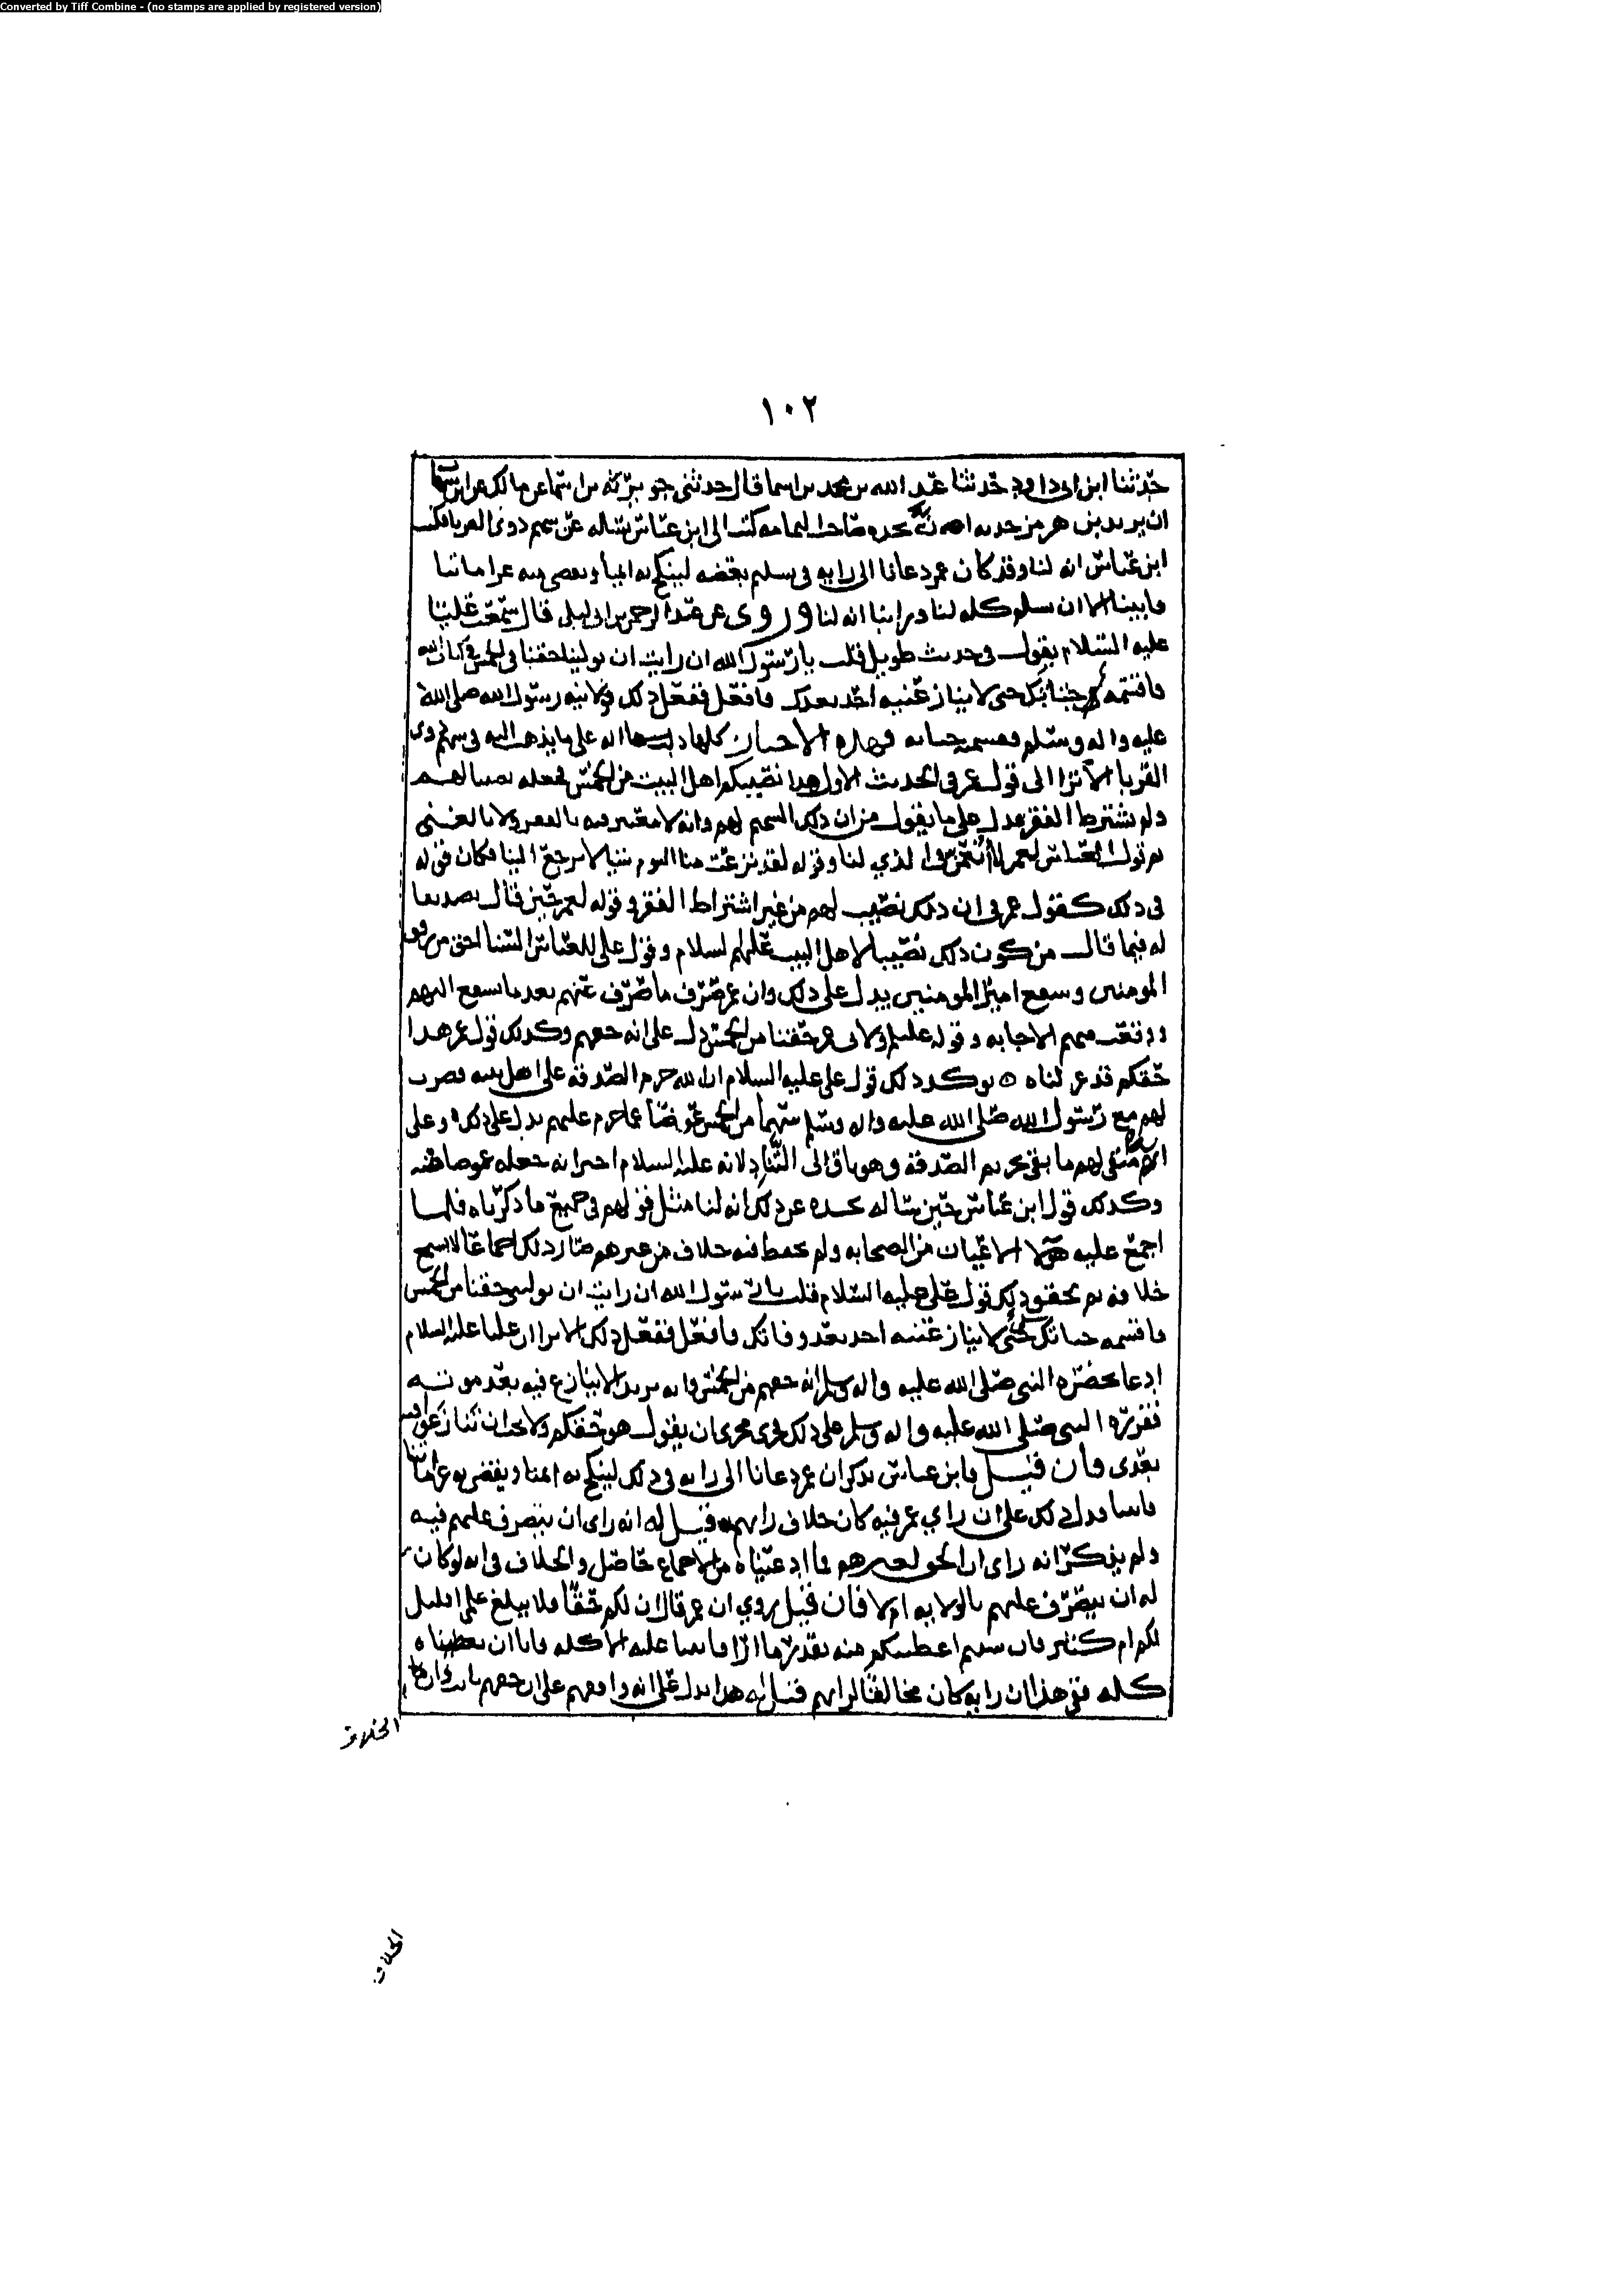 Converted by Tiff Combine - (no stamps are applied by registered version)
١٠٢
حدثنا ابن ابي داود حدثنا عبد الله بن محمد بن اسما قال حدثني جويرية بن اسما عن مالك عن ابن شهاب
ان يزيد بن هرمز حدثه ان نجده صاحب اليمامه كتب الى ابن عباس يساله عن سهم ذوي القربا فكتب
ابن عباس انه لنا وقد كان عمر دعانا الى رايه في بسلم بعضه لينكح به ايمنا ويعصى منه عرا ماتنا
فابينا الا ان سلم كله لنا وراينا انه لنا وروى عن عبد الرحمن بن ابي ليلى قال سمعت عليا
عليه السلام يقول في حديث طويل قلت يا رسول الله ان رايت ان تولينا حقنا في الخمس في كتاب الله
فاقسمه حياتك حتى لا ينازعنيه احد بعدك فافعل ففعل ذلك فولانيه رسول الله صلى الله
عليه واله وسلم فقسمته حياته فهذه الاخبار كلها داله على ما يذهب اليه في سهم ذوي
القربا الا ترا الى قول عمر في الحديث الاول هذا نصيبكم اهل البيت من الخمس فجعله نصيبا لهم
ولم يشترط الفقر يدل على ما يقول من ان ذلك السهم لهم وانه لا معتبر فيه بالفقر ولا بالغنى
ثم قول العباس لعمر لا تغتمز في الذي لنا وقوله لقد نزعت منا اليوم شيا لا يرجع الينا فكان قوله
في ذلك كقول عمر في ان ذلك نصيب لهم من غير اشتراط الفقر وقوله لعمر حين قال تصديقا
له فيما قال من كون ذلك نصيبا لاهل البيت عليهم السلام وقول علي للعباس السنا احق من رفق
المومنين وسفع امير المومنين يدل على ذلك وان عمر صرف ما صرف عنهم بعد ما سفع اليهم
ووقعت منهم الاجابه وقوله عليلم ولاني عمر حقنا من الخمس دل على انه حقهم وكذلك قول عمر هذا
حقكم قد عزلناه ه يوكد ذلك قول علي عليه السلام ان الله حرم الصدقه على اهل بيته فضرب
لهم مع رسول الله صلى الله عليه واله وسلم سهما من الخمس عوضا مما حرم عليهم يدل على ذلك وعلى
انه يبقى لهم ما بقي تحريم الصدقه وهو باق الى التناد لانه عليه السلام اخبر انه جعله عوضا منه
وكذلك قول ابن عباس حين ساله نجده عن ذلك انه لنا مثل قولهم في جميع ما ذكرناه فلما
اجمع عليه هولا الاعيان من الصحابه ولم يحفظ فيه خلاف من غيرهم صار ذلك اجماعا لا يسع
خلافه ثم يحقق ذلك قول علي عليه السلام قلت يا رسول الله ان رايت ان توليني حقنا من الخمس
فاقسمه حياتك حتى لا ينازعنيه احد بعد وفاتك فافعل ففعل ذلك الا ترا ان عليا عليه السلام
ادعا بحضره النبي صلى الله عليه واله وسلم انه حقهم من الخمس وانه يريد الا ينازع فيه بعد موته
فقرره النبي صلى الله عليه واله وسلم على ذلك فجرى مجرى ان يقول هو حقكم ولا يجب ان تنازعوا فيه
بعدي فان قيل فابن عباس يذكر ان عمر دعانا الى رايه في ذلك لينكح به ايمنا ويقضى به غرامتنا
فابينا فدل ذلك على ان راي عمر فيه كان خلاف رايهم قيل له انه راى ان يتصرف عليهم فيه
ولم يذكر انه راى ان الحق لغيرهم فما ادعيناه من الاجماع حاصل والخلاف في انه لو كان
له ان يتصرف عليهم بالولايه ام لا فان قيل روي ان عمر قال ان لكم حقا ولا يبلغ علمي اقليل
لكم ام كثير فان شيتم اعطيتكم منه بقدر ما ارا فابينا عليه الا كله فابا ان يعطيناه
كله ففي هذا ان رايه كان مخالفا لرايهم قيل له هذا يدل على انه وافقهم على ان حقهم ثابت وان
الخلاف
الخلاف